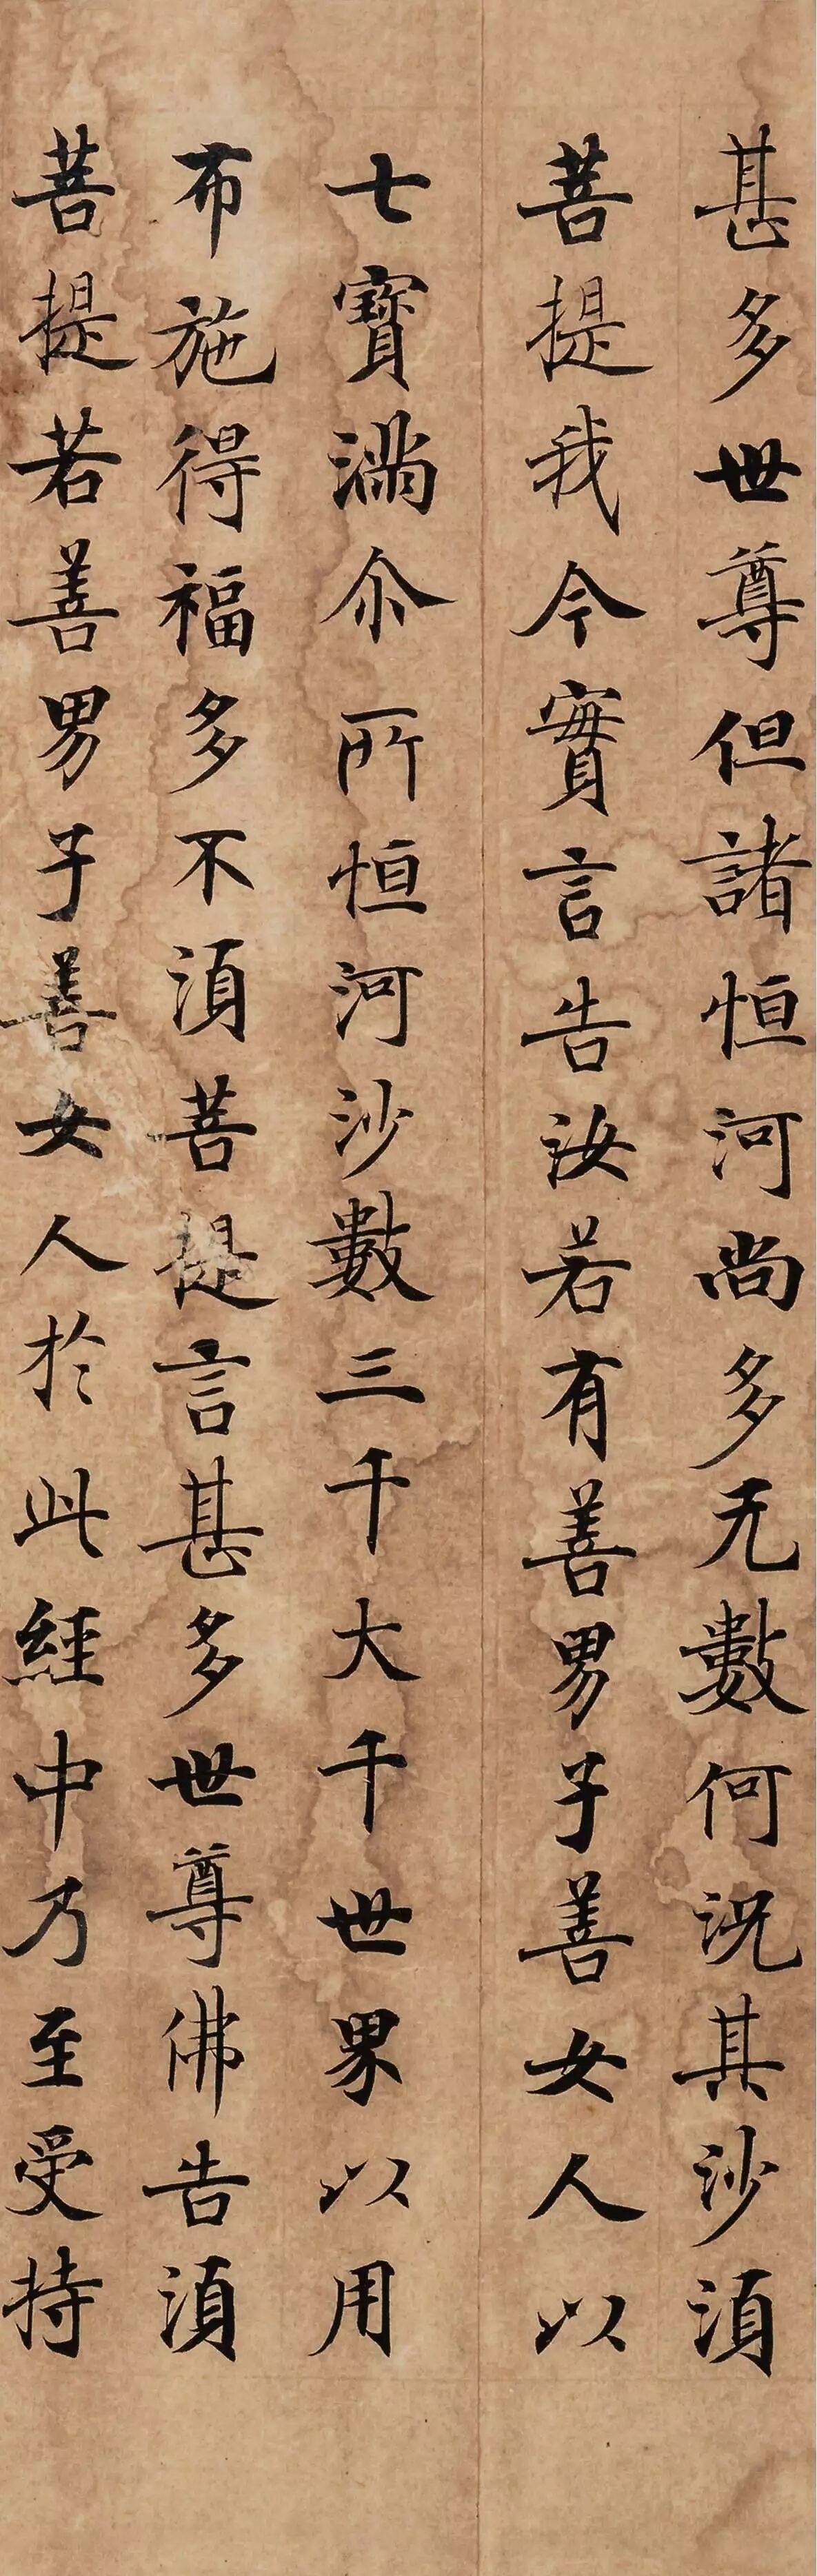 甚多世尊但諸恒河尚多无數何況其沙湏
菩提我今實言告汝若有善男子善女人以
七寶滿尒所恒河沙數三千大千世界以用
布施得福多不湏菩提言甚多世尊佛告湏
菩提若善男子善女人於此經中乃至受持